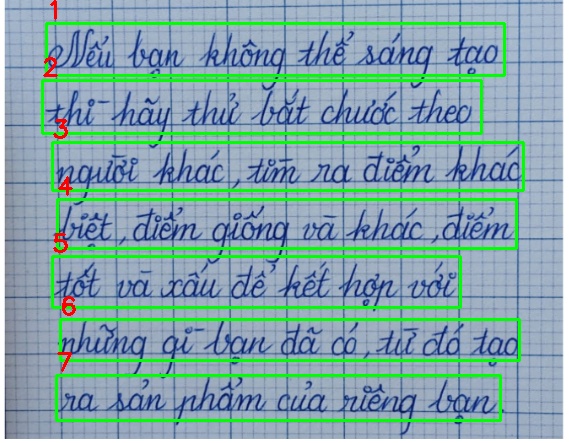 Nếu bạn không thể sáng tạo
thì hãy thử bắt chước theo
người khác, tìm ra điểm khác
biệt, điểm giống và khác, điểm
tốt và xấu để kết hợp với
những gì bạn đã có, từ đó tạo
ra sản phẩm của riêng bạn.
1
2
3
4
5
6
7